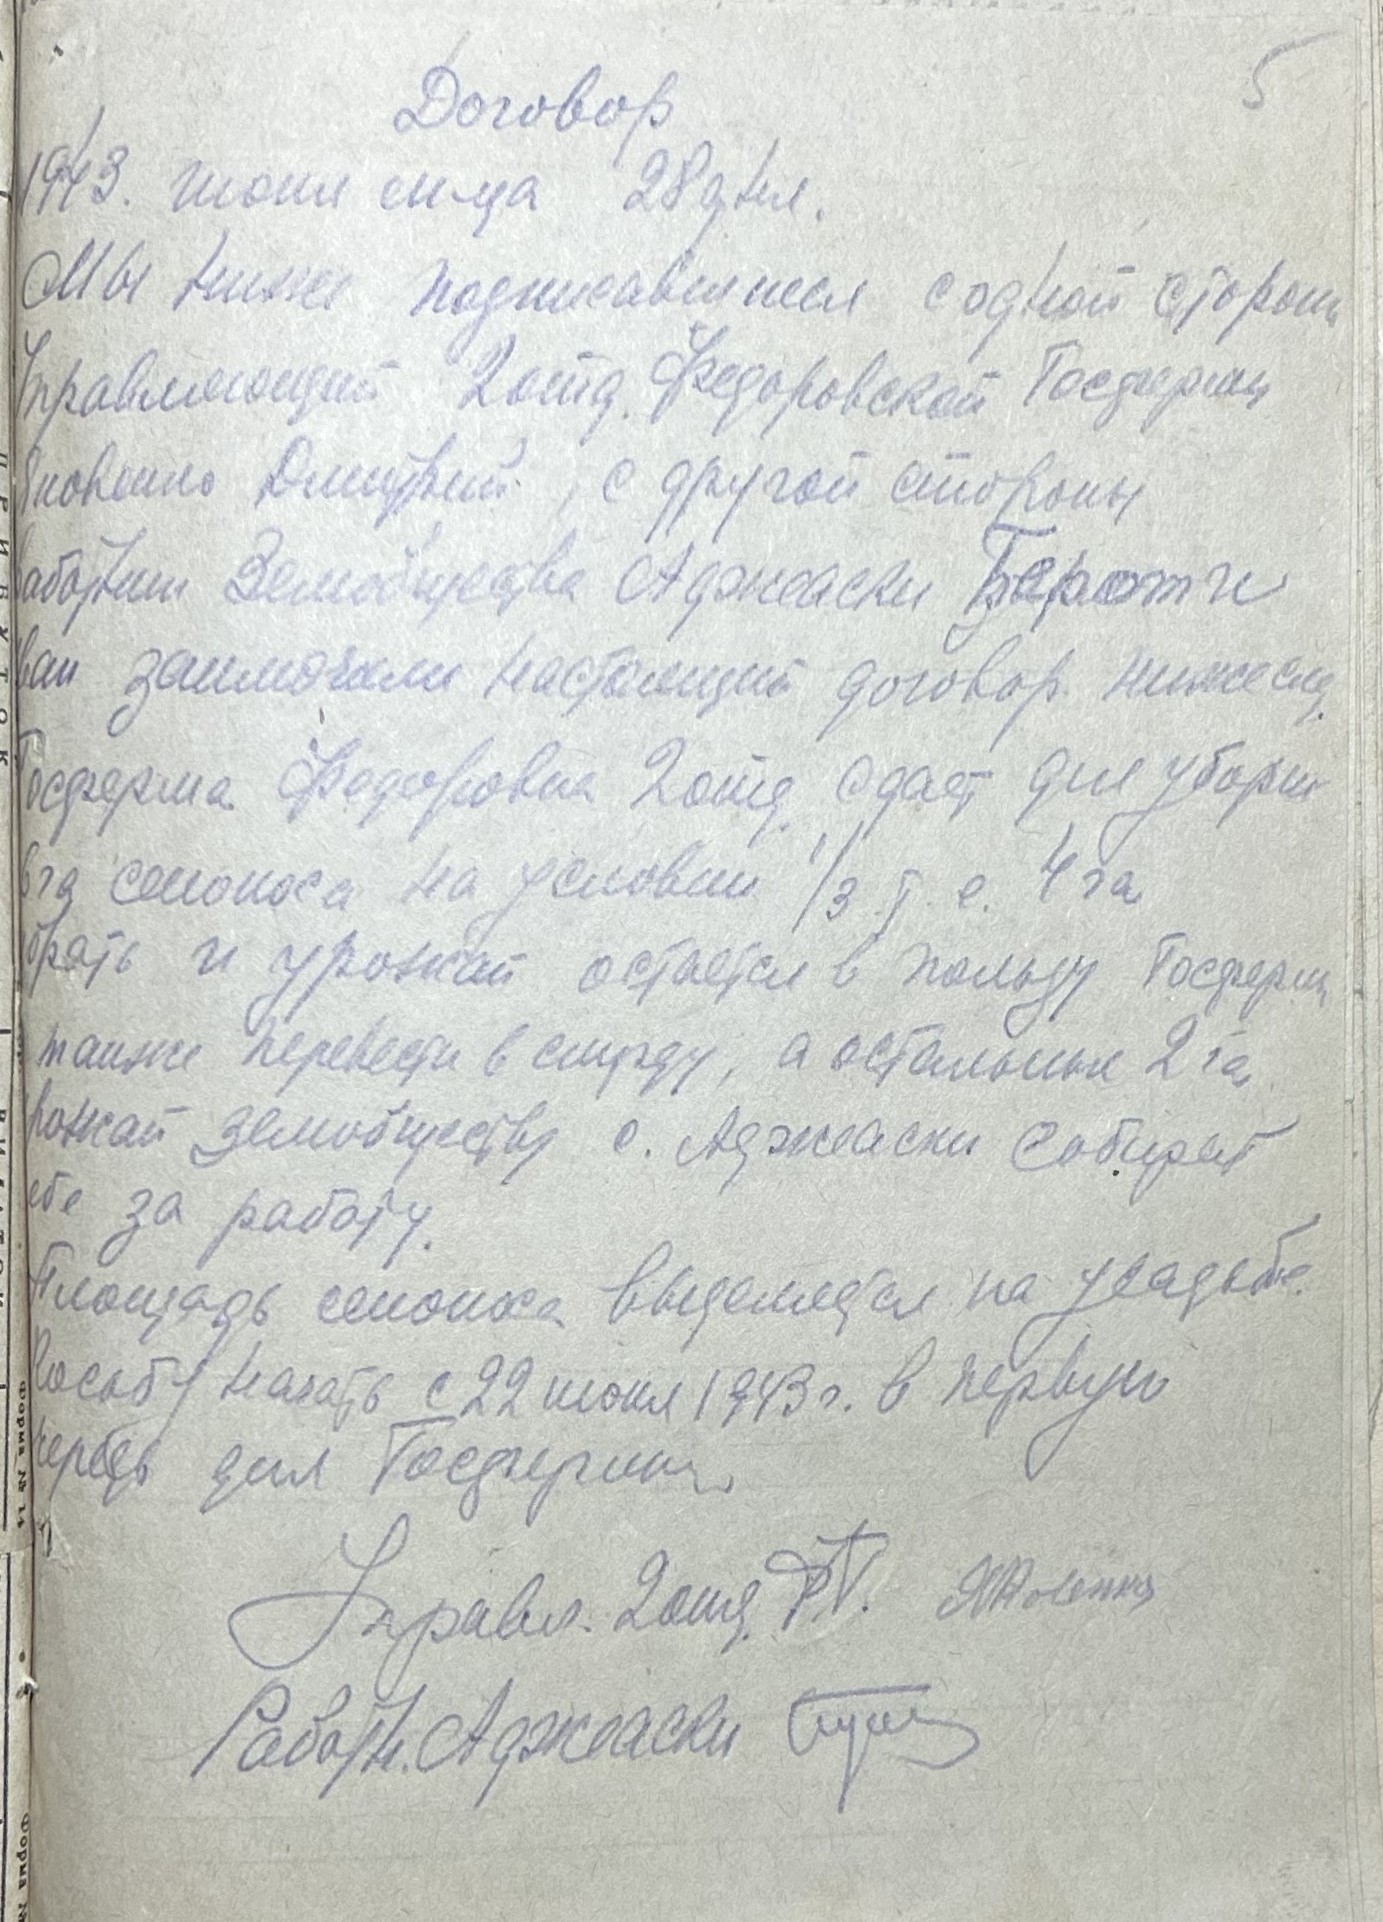 5
Договор
1943. июня м-ца 28 дня.
Мы ниже подписавшиеся с одной стороны
Управляющий 2 отд. Федоровской Госфермы
Дмитрий, с другой стороны
Земобщества Аджиаски
заключили настоящий договор нижеслед.
Госферма Федоровка 2 отд. сдает для уборки
га сенокоса на условии 1/3 т. е. 4 га
убрать и урожай остается в пользу Госфермы
также перевести в скирду, а остальные 2 га
урожай земобществу с. Аджиаски собирает
себе за работу.
Площадь сенокоса выделяется на усадьбе.
Косьбу начать с 22 июня 1943 г. в первую
очередь для Госфермы.
Управл. 2 отд.
Работн. Аджиаски
Форма №
Форма №